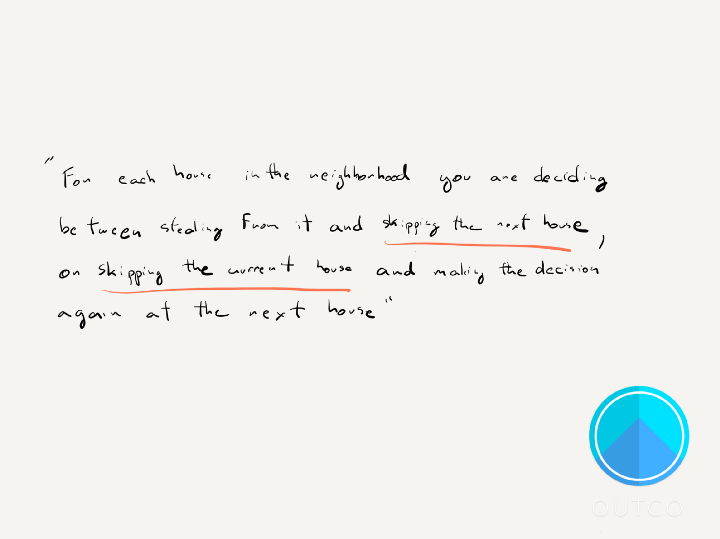 "For each house in the neighborhood you are deciding
between stealing from it and skipping the next house,
or skipping the current house and making the decision
again at the next house"
OUTCO